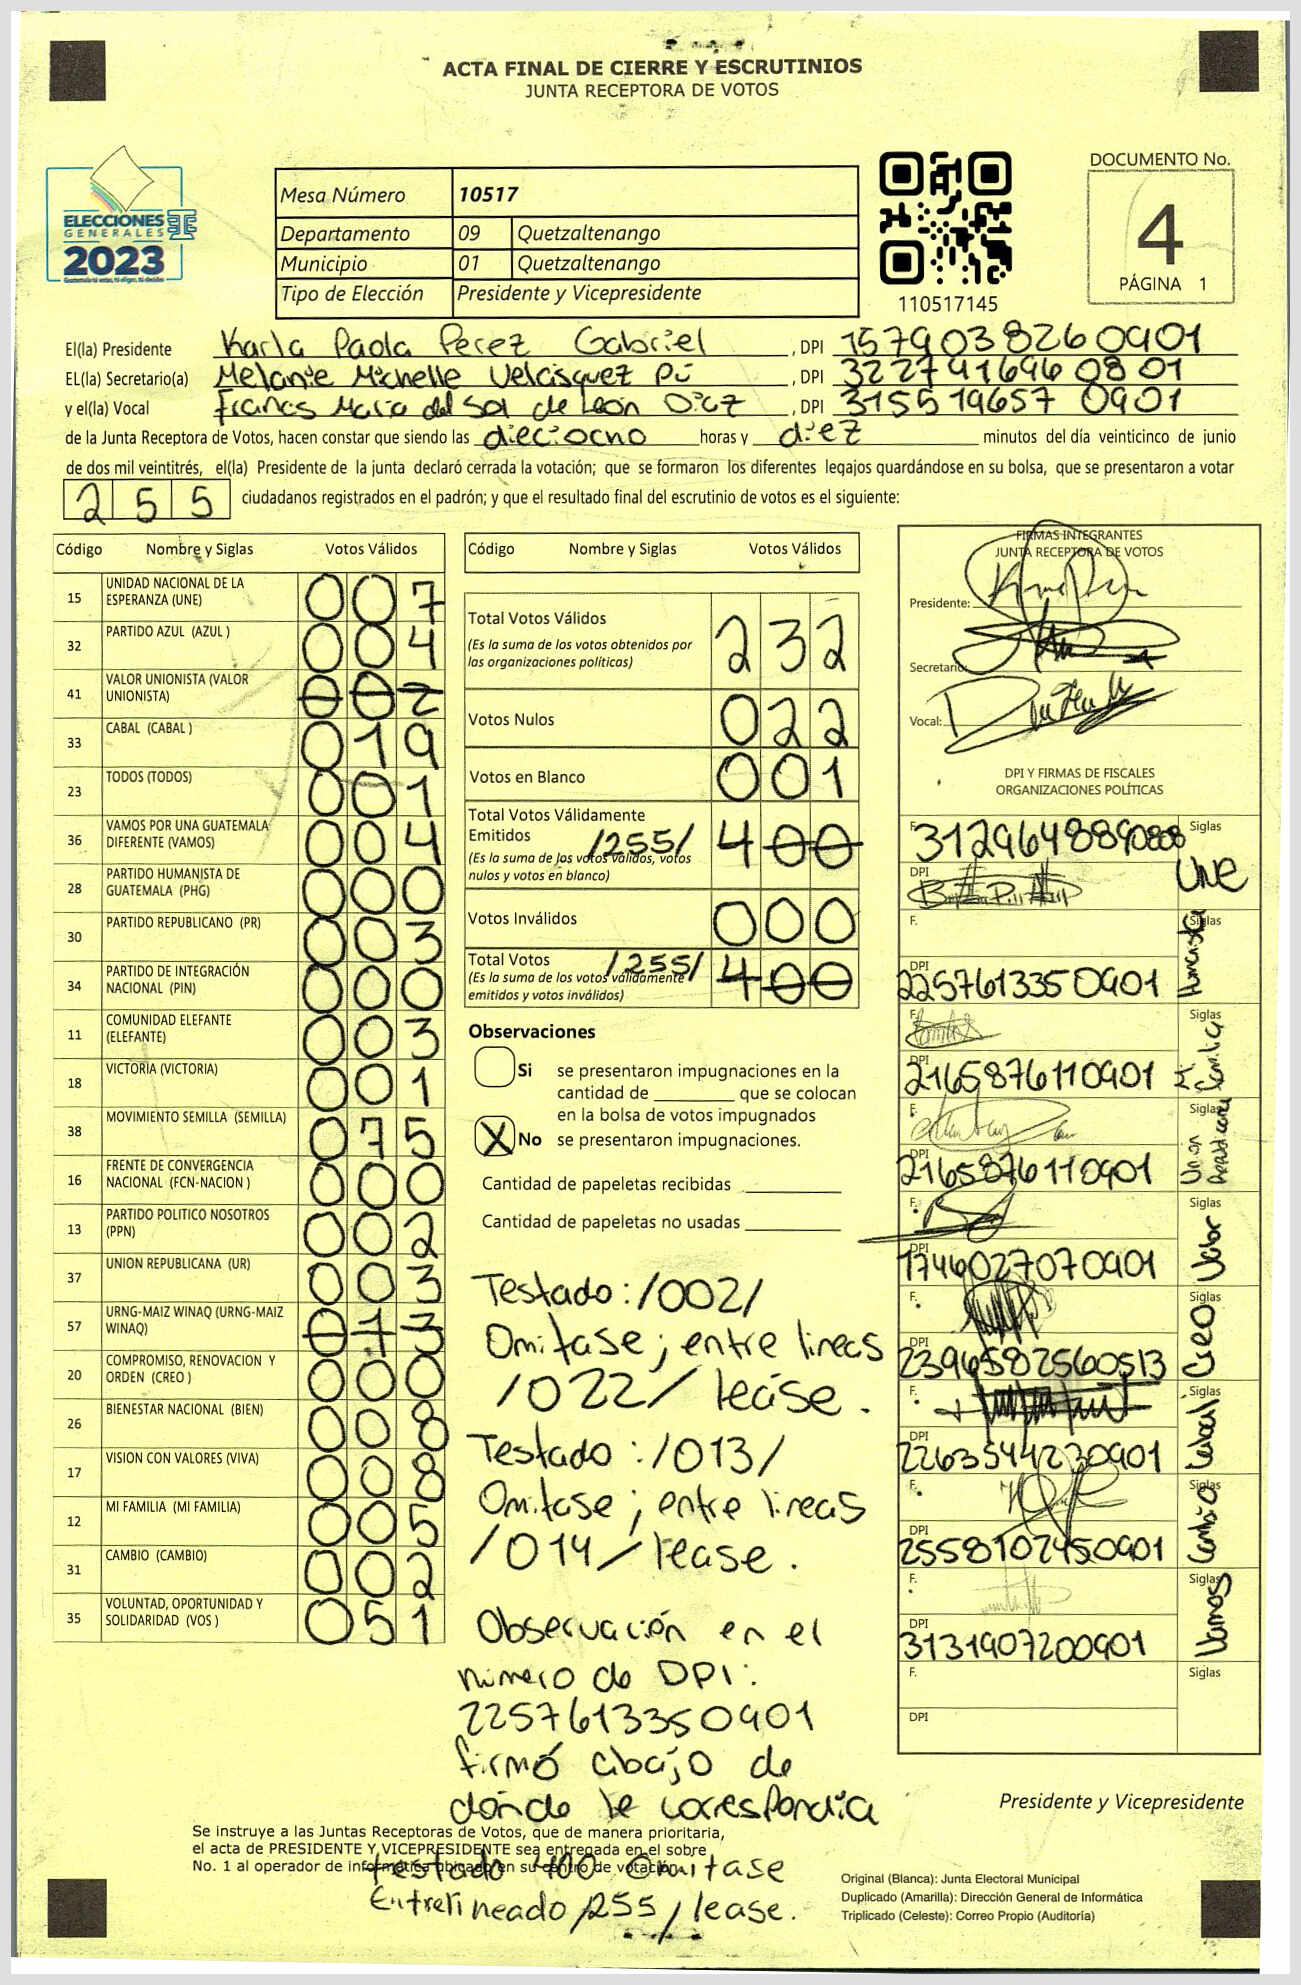 ACTA FINAL DE CIERRE Y ESCRUTINIOS
JUNTA RECEPTORA DE VOTOS
ELECCIONES
GENERALES
2023
Mesa Número 10517
Departamento 09 Quetzaltenango
Municipio 01 Quetzaltenango
Tipo de Elección Presidente y Vicepresidente
110517145
DOCUMENTO No.
4
PÁGINA 1
El(la) Presidente Karla Paola Perez Gabriel , DPI 1579038260901
EL(la) Secretario(a) Melanie Michelle Velásquez Pú , DPI 3227416960801
y el(la) Vocal Frances María del Sol de León Díaz , DPI 3155196570901
de la Junta Receptora de Votos, hacen constar que siendo las dieciocho horas y diez minutos del día veinticinco de junio
de dos mil veintitrés, el(la) Presidente de la junta declaró cerrada la votación; que se formaron los diferentes legajos guardándose en su bolsa, que se presentaron a votar
255 ciudadanos registrados en el padrón; y que el resultado final del escrutinio de votos es el siguiente:
Código Nombre y Siglas Votos Válidos
15 UNIDAD NACIONAL DE LA ESPERANZA (UNE) 007
32 PARTIDO AZUL (AZUL ) 004
41 VALOR UNIONISTA (VALOR UNIONISTA) 002
33 CABAL (CABAL ) 019
23 TODOS (TODOS) 001
36 VAMOS POR UNA GUATEMALA DIFERENTE (VAMOS) 004
28 PARTIDO HUMANISTA DE GUATEMALA (PHG) 000
30 PARTIDO REPUBLICANO (PR) 003
34 PARTIDO DE INTEGRACIÓN NACIONAL (PIN) 000
11 COMUNIDAD ELEFANTE (ELEFANTE) 003
18 VICTORIA (VICTORIA) 001
38 MOVIMIENTO SEMILLA (SEMILLA) 075
16 FRENTE DE CONVERGENCIA NACIONAL (FCN-NACION ) 000
13 PARTIDO POLITICO NOSOTROS (PPN) 002
37 UNION REPUBLICANA (UR) 003
57 URNG-MAIZ WINAQ (URNG-MAIZ WINAQ) 013
20 COMPROMISO, RENOVACION Y ORDEN (CREO ) 000
26 BIENESTAR NACIONAL (BIEN) 008
17 VISION CON VALORES (VIVA) 008
12 MI FAMILIA (MI FAMILIA) 005
31 CAMBIO (CAMBIO) 002
35 VOLUNTAD, OPORTUNIDAD Y SOLIDARIDAD (VOS ) 051
Código Nombre y Siglas Votos Válidos
Total Votos Válidos 232
(Es la suma de los votos obtenidos por
las organizaciones políticas)
Votos Nulos 022
Votos en Blanco 001
Total Votos Válidamente
Emitidos /255/ 400
(Es la suma de los votos válidos, votos
nulos y votos en blanco)
Votos Inválidos 000
Total Votos /255/ 400
(Es la suma de los votos válidamente
emitidos y votos inválidos)
Observaciones
Si se presentaron impugnaciones en la
cantidad de ________ que se colocan
en la bolsa de votos impugnados
X No se presentaron impugnaciones.
Cantidad de papeletas recibidas
Cantidad de papeletas no usadas
Testado: /002/
Omitase; entre lineas
/022/ léase.
Testado: /013/
Omitase; entre lineas
/014/ lease.
Observación en el
número de DPI:
2257613350901
firmó abajo de
dónde le correspondía
Se instruye a las Juntas Receptoras de Votos, que de manera prioritaria,
el acta de PRESIDENTE Y VICEPRESIDENTE sea entregada en el sobre
No. 1 al operador de informática ubicado en su centro de votación.
testado 400 Omitase
Entrelineado /255/ lease.
FIRMAS INTEGRANTES
JUNTA RECEPTORA DE VOTOS
Presidente:
Secretario:
Vocal:
DPI Y FIRMAS DE FISCALES
ORGANIZACIONES POLÍTICAS
F. Siglas
3129648890808
DPI
UNE
F. Siglas
DPI 2257613350901
Humanista
F. Siglas
DPI 2165876110901
Semilla
F. Siglas
DPI 2165876110901
Union Republicana
F. Siglas
DPI 1746027070901
Valor
F. Siglas
DPI 2396582560513
CREO
F. Siglas
DPI 2263544230901
Cabal
F. Siglas
DPI 2558102450901
Cambio
F. Siglas
DPI 3131907200901
Vamos
F. Siglas
DPI
Presidente y Vicepresidente
Original (Blanca): Junta Electoral Municipal
Duplicado (Amarilla): Dirección General de Informática
Triplicado (Celeste): Correo Propio (Auditoría)